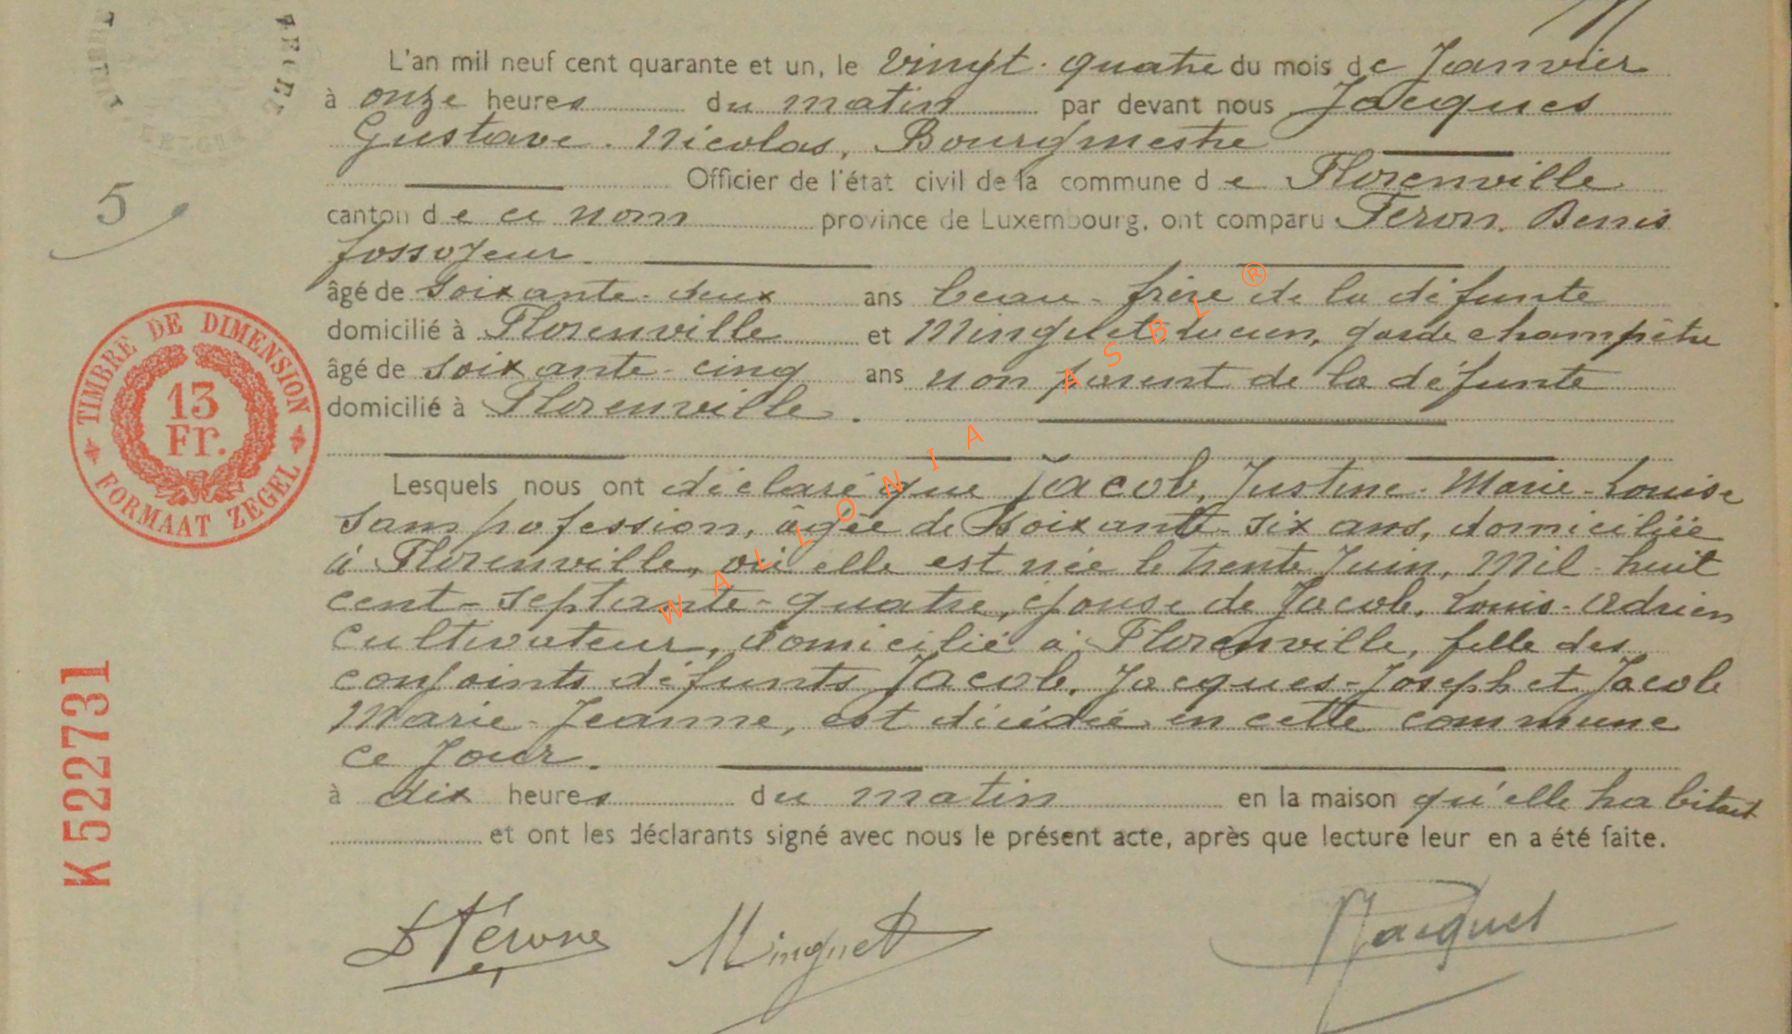 L'an mil neuf cent quarante et un, le vingt-quatre du mois de Janvier
à onze heures du matin par devant nous Jacques
Gustave-Nicolas, Bourgmestre
Officier de l'état civil de la commune de Florenville
5
canton de ce nom province de Luxembourg, ont comparu Feron, Denis
fossoyeur.
âgé de soixante-deux ans beau-frère de la défunte
domicilié à Florenville et Minguet Lucien, garde champêtre
âgé de soixante-cinq ans non parent de la défunte
domicilié à Florenville.
TIMBRE DE DIMENSION
13
Fr.
FORMAAT ZEGEL
Lesquels nous ont déclaré que Jacob, Justine-Marie-Louise
sans profession, âgée de soixante-six ans, domiciliée
à Florenville, où elle est née le trente Juin, Mil-huit
cent-septante-quatre, épouse de Jacob, Louis-Adrien
cultivateur, domicilié à Florenville, fille des
conjoints défunts Jacob, Jacques-Joseph et Jacob
Marie-Jeanne, est décédée en cette commune
ce Jour.
à dix heures du matin en la maison qu'elle habitait
et ont les déclarants signé avec nous le présent acte, après que lecture leur en a été faite.
K522731
D Féron
Minguet
Jacques
WALLONIA ASBL ®